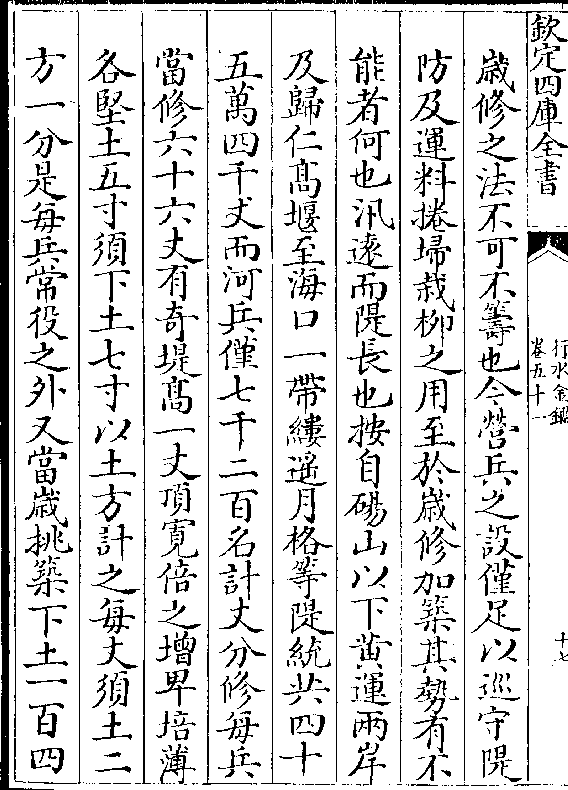 欽定四庫全書
行水金鑑
卷五十一
十七
歳修之法不可不籌也今營兵之設僅足以巡守隄
防及運料捲埽栽栁之用至於歳修加築其勢有不
能者何也汛遠而隄長也按自碭山以下黄運兩岸
及歸仁髙堰至海口一帶縷遥月格等隄統共四十
五萬四千丈而河兵僅七千二百名計丈分修每兵
當修六十六丈有奇堤髙一丈頂寛倍之增卑培薄
各堅土五寸須下土七寸以土方計之每丈須土二
方一分是每兵常役之外又當歳挑築下土一百四